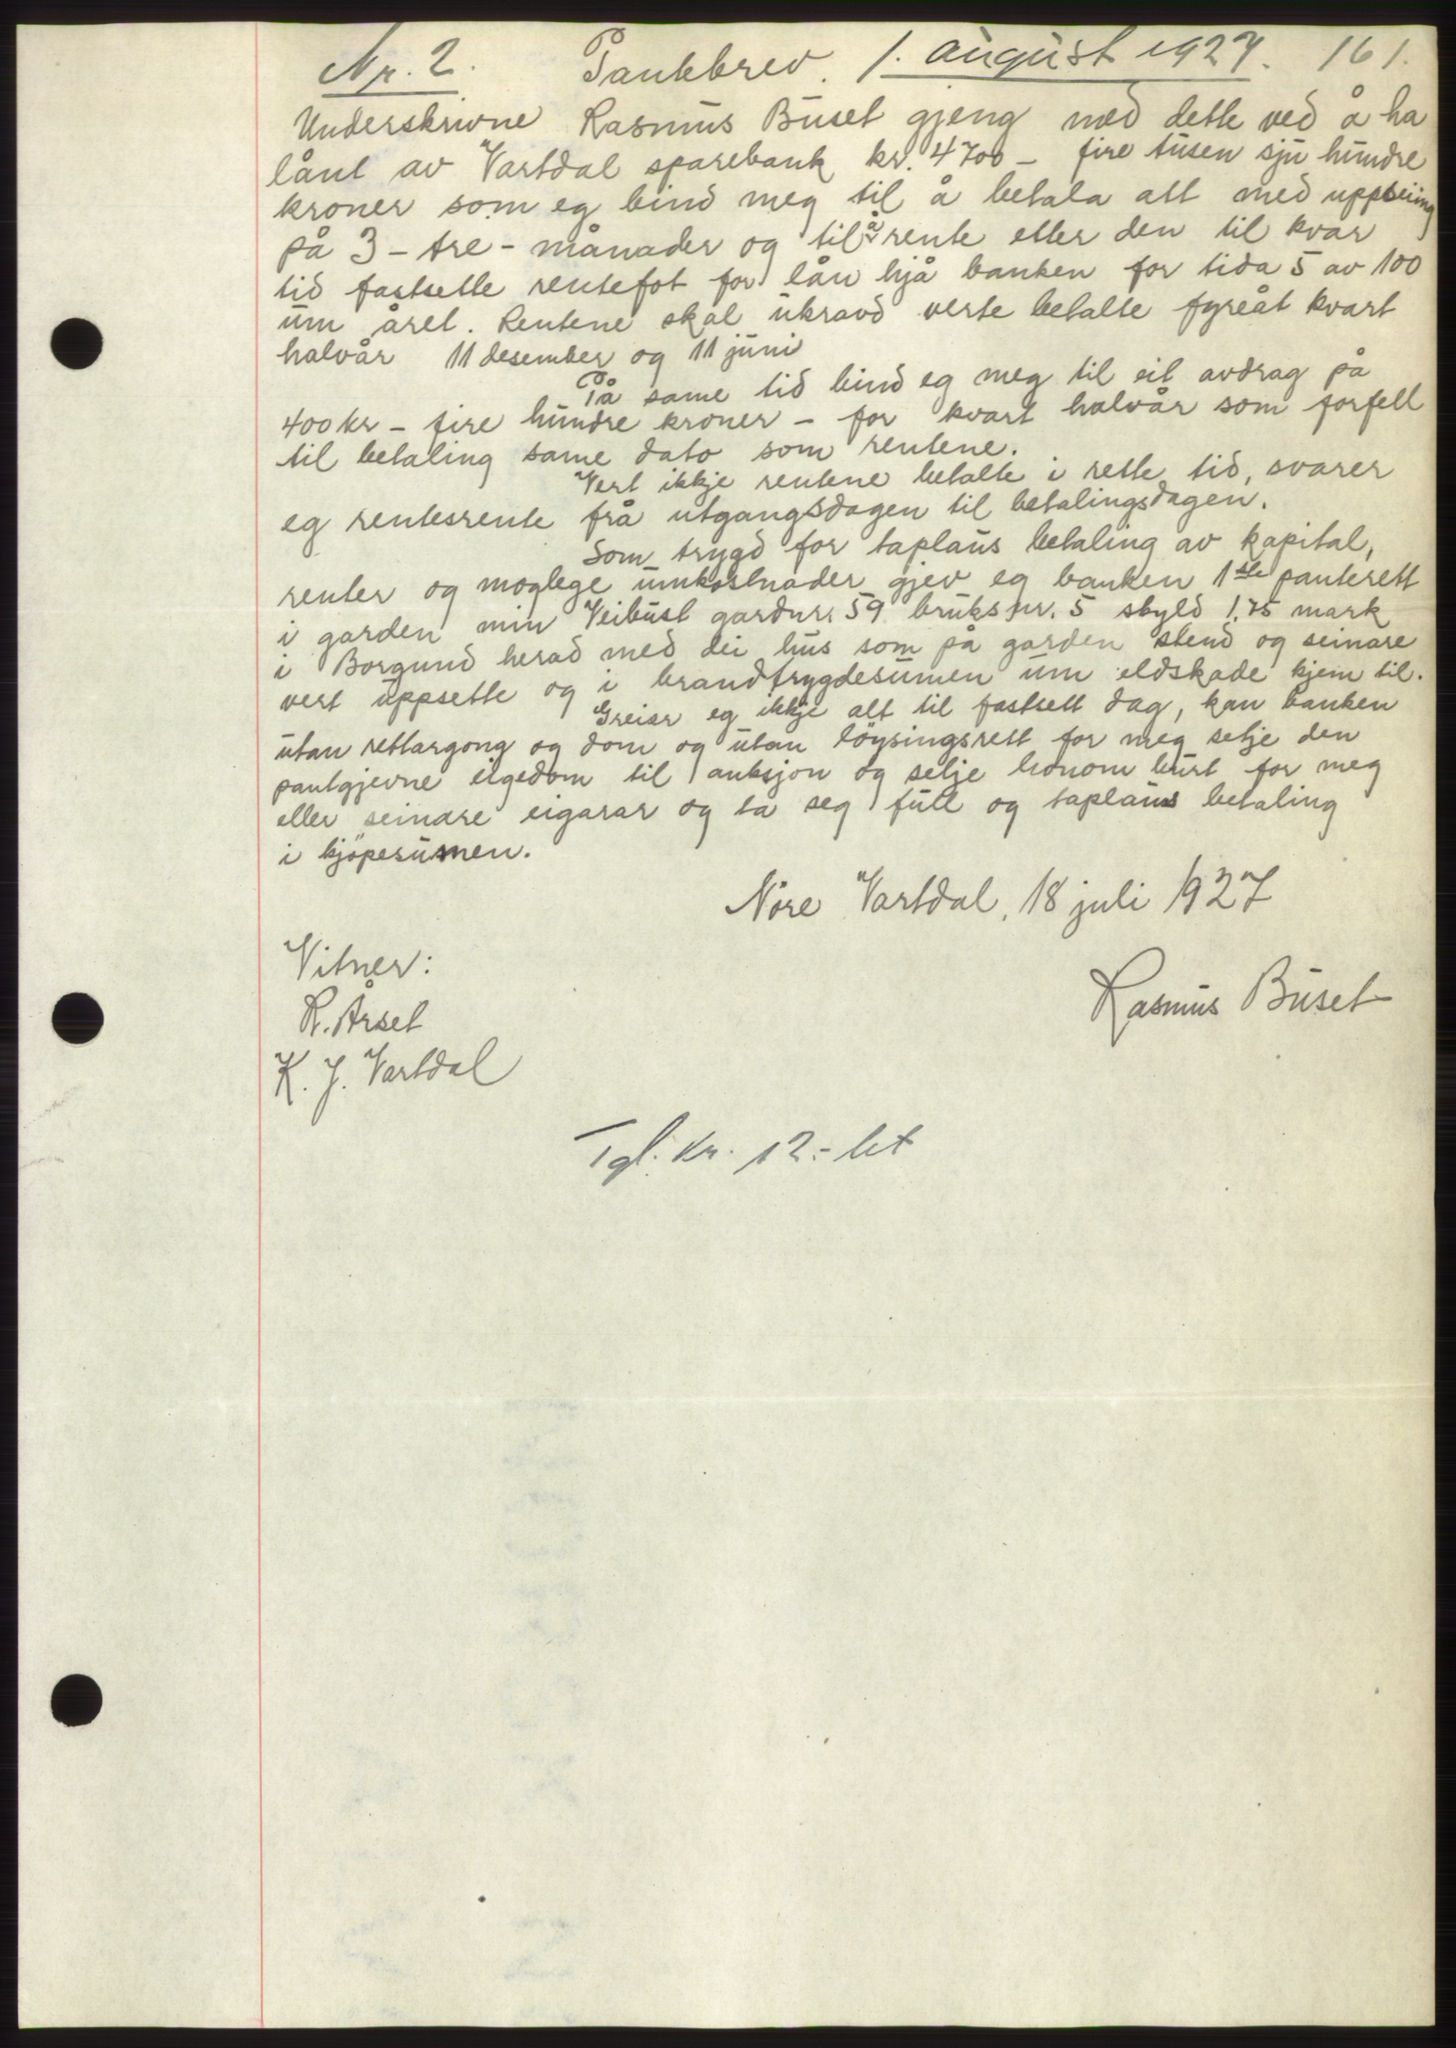 Nr. 2. Pantebrev. 1. august 1927. 161.
Underskrivne Rasmus Buset gjeng med dette ved å ha
lånt av Vartdal sparebank kr. 4700 – fire tusen sju hundre
kroner som eg bind meg til å betala att med uppseiing
på 3 – tre – månader og til å rente etter den til kvar
tid fastsette rentefot for lån hjå banken for tida 5 av 100
um året. Rentene skal ukravd verte betalte fyreåt kvart
halvår 11 desember og 11 juni
På same tid bind eg meg til eit avdrag på
400 kr – fire hundre kroner – for kvart halvår som forfell
til betaling same dato som rentene.
Vert ikkje rentene betalte i rette tid, svarer
eg rentesrente frå utgangsdagen til betalingsdagen.
Som trygd for taplaus betaling av kapital,
renter og moglege umkostnader gjev eg banken 1ste panterett
i garden min Veibust gardnr. 59 bruksnr. 5 skyld 1.75 mark
i Borgund herad med dei hus som på garden stend og seinare
vert uppsette og i brandtrygdesumen um eldskade kjem til.
Greier eg ikkje alt til fastsett dag, kan banken
utan rettargong og dom og utan löysingsrett for meg setje den
pantgjevne eigedom til auksjon og selje honom burt for meg
eller seinare eigarar og ta seg full og taplaus betaling
i kjöpesumen.
Nore Vartdal, 18 juli 1927
Vitner:
Rasmus Buset
R. Årset
K. J. Vartdal
Tgl. kr. 12.- bet